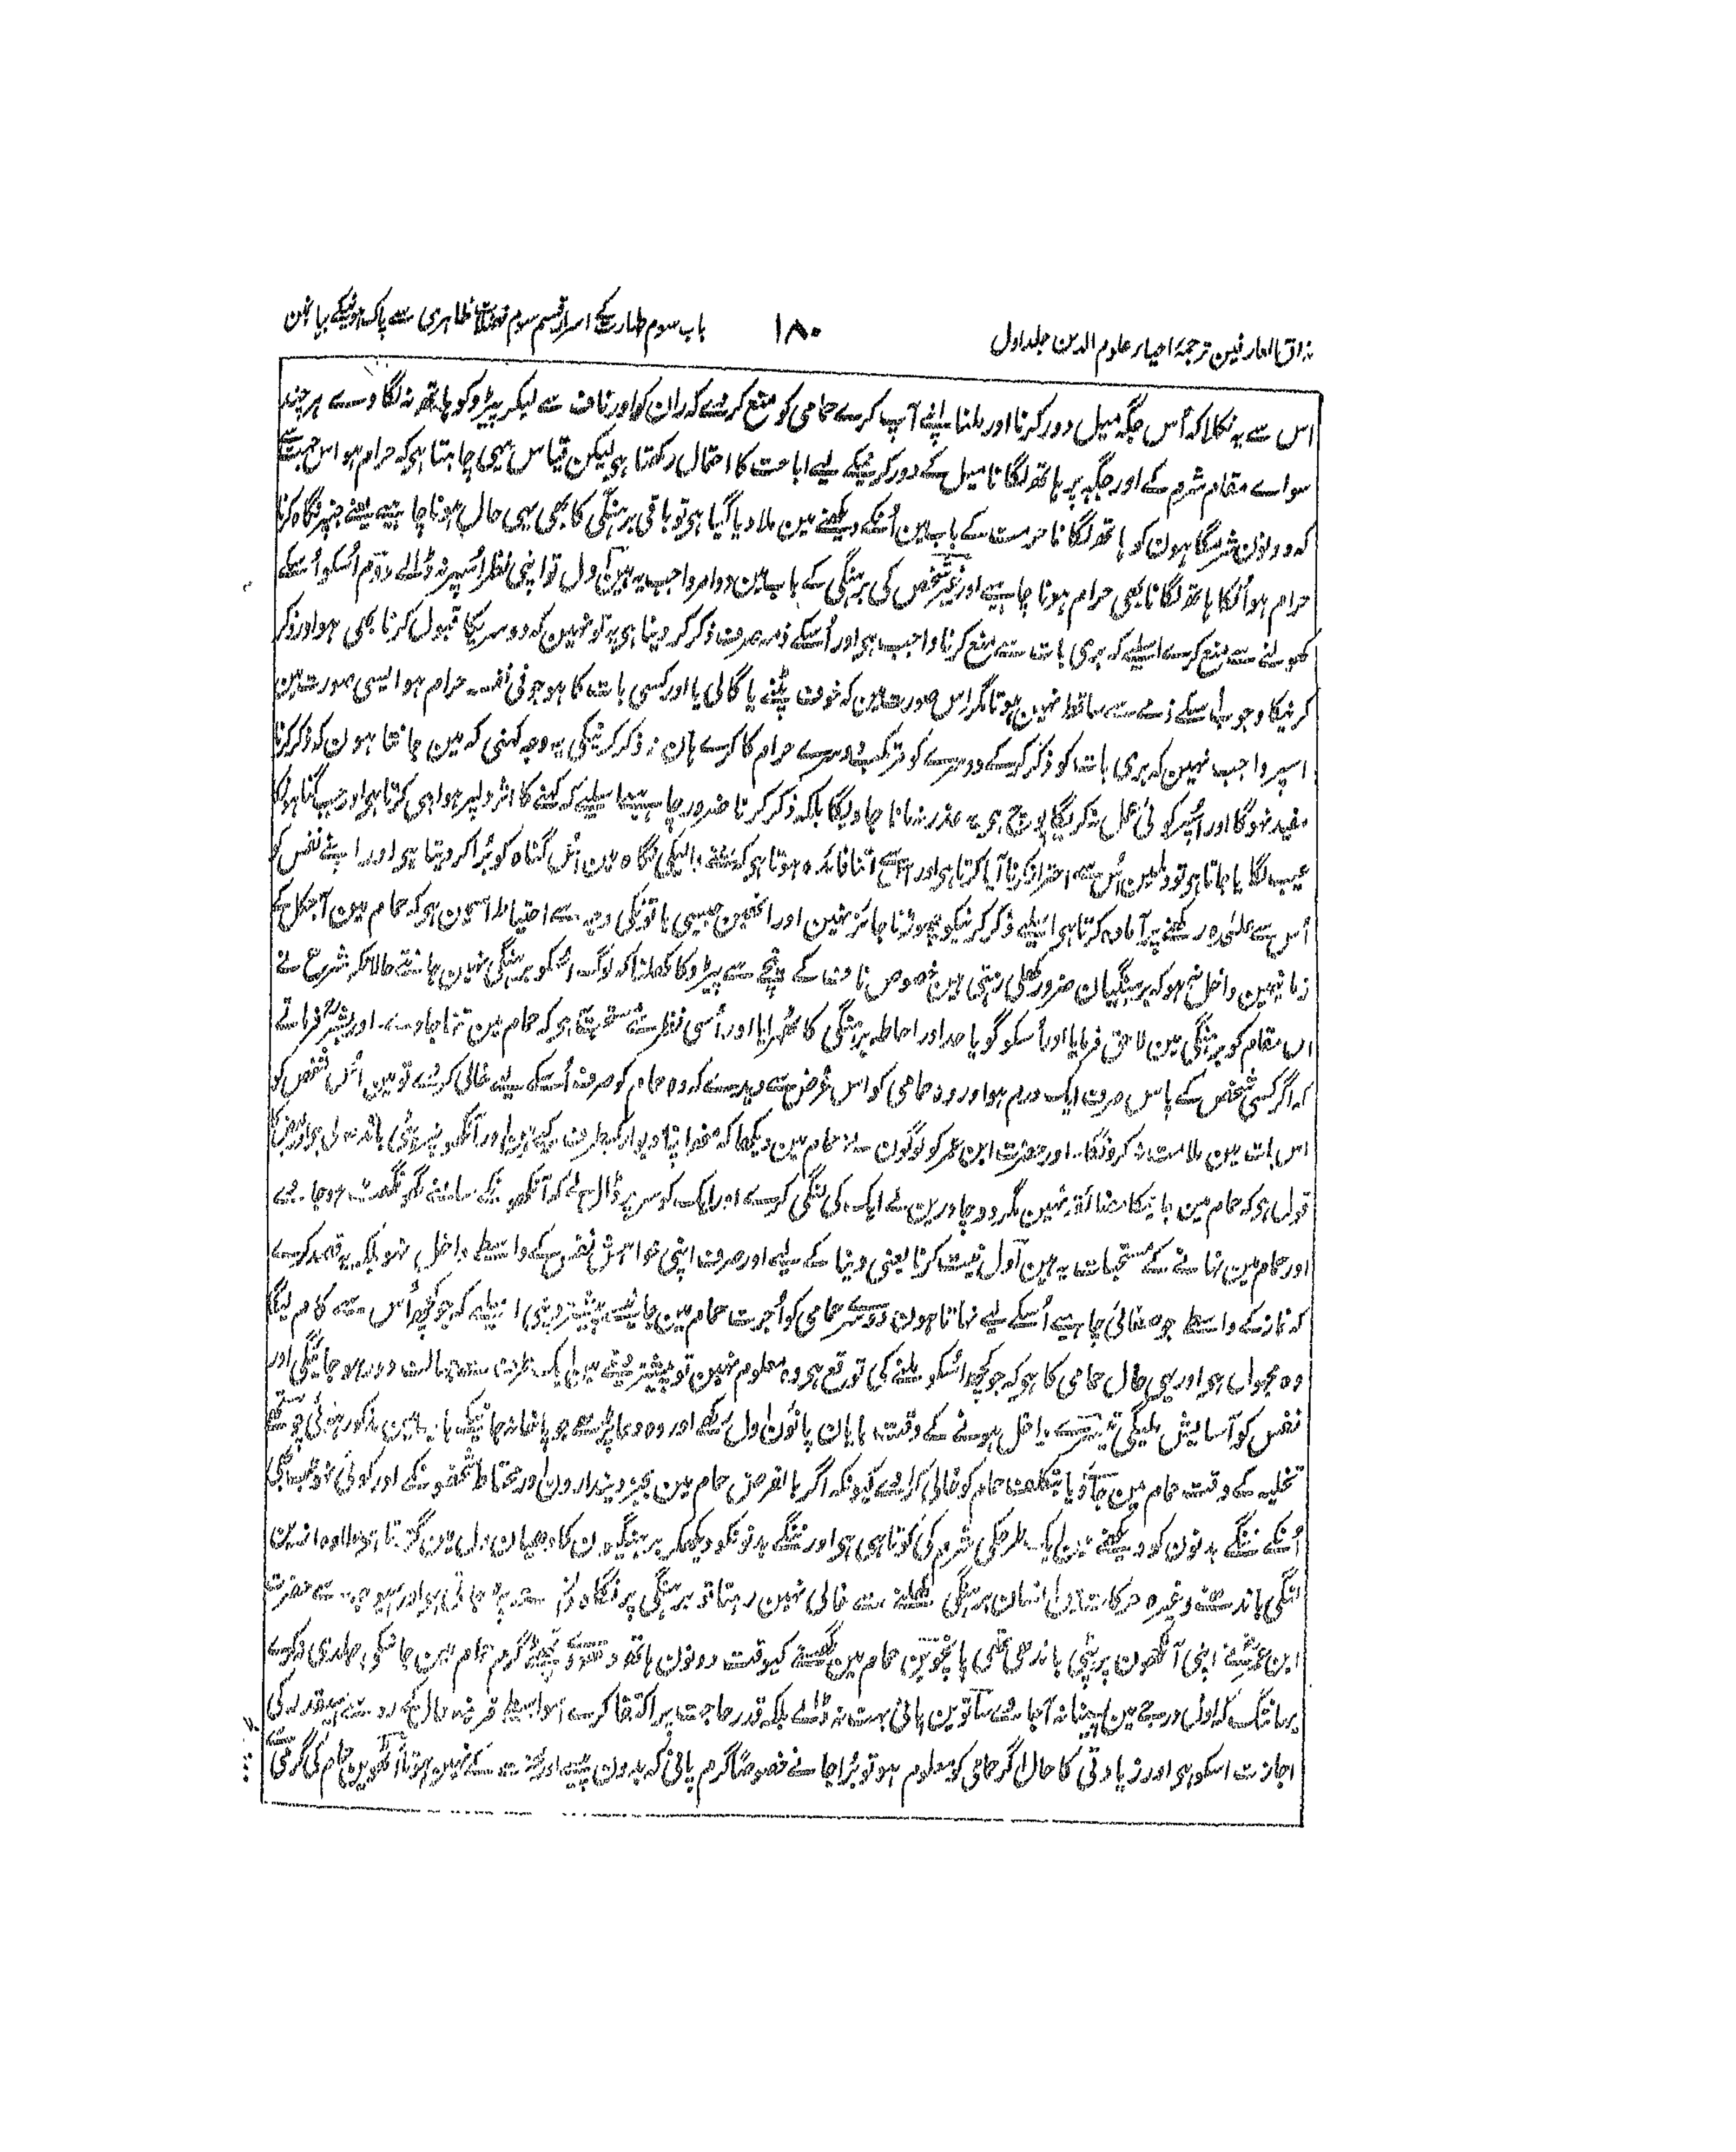 مذاق العارفین ترجمۂ احیاء علوم الدین جلد اول
۱۸۰
باب سوم طہارت کے اسرار قسم سوم فضلات ظاہری سے پاک ہونیکے بیان مین
اس سے یہ نکلا کہ اُس جگہ میل دور کرنا اور ملنا اپنے آپ کرے حمامی کو منع کر دے کہ ران کو اور ناف سے لیکر پیڑو کو ہاتھ نہ لگاوے ہر چند
سواے مقام شرم کے اور جگہ پر ہاتھ لگانا میل کے دور کرنیکے لیے اباحت کا احتمال رکھتا ہی لیکن قیاس یہی چاہتا ہی کہ حرام ہو اس جہت سے
کہ دونون شرمگاہون کو ہاتھ لگانا حرمت کے باب مین اُنکے دیکھنے مین ملا دیا گیا ہی تو باقی برہنگی کا بھی یہی حال ہونا چاہیے یعنے جنپر نگاہ کرنا
حرام ہو اُنکا ہاتھ لگانا بھی حرام ہونا چاہیے اور غیر شخص کی برہنگی کے باب مین دو امر واجب یہ ہین اول تو اپنی نظر اُسپر نہ ڈالے دوم اُسکو اُسکے
کھولنے سے منع کرے اسلیے کہ بری بات سے منع کرنا واجب ہی اور اُسکے ذمہ صرف ذکر کر دینا ہی یہ تو نہین کہ دوسریکا قبول کرنا بھی ہو اور ذکر
کرنیکا وجوب اسکے ذمے سے ساقط نہین ہوتا مگر اس صورت مین کہ خوف پٹنے یا گالی یا اور کسی بات کا ہو جو فی نفسہ حرام ہو ایسی صورت مین
اسپر واجب نہین کہ بری بات کو ذکر کرکے دوسرے کو مرتکب دوسرے حرام کا کرے ہان نہ ذکر کرنیکی یہ وجہ کہنی کہ مین جانتا ہون کہ ذکر کرنا
مفید نہوگا اور اُسپر کوئی عمل نہ کریگا پوچ ہی یہ عذر نہ مانا جاویگا بلکہ ذکر کرنا ضرور چاہیے اسلیے کہ کہنے کا اثر دلپر ہوا ہی کرتا ہی اور جب گناہونکا
عیب لگایا جاتا ہو تو دلمین اُس سے احتراز کرنا آیا کرتا ہی اور اس سے اتنا فائدہ ہوتا ہی کہ سننے والیکی نگاہ مین اُس گناہ کو بُرا کر دیتا ہی اور اپنے نفس کو
اُس سے علٰحدہ رکھنے پر آمادہ کرتا ہی اسلیے ذکر کرنیکو چھوڑنا جائز نہین اور انھین جیسی باتونکی وجہ سے احتیاط اسمین ہی کہ حمام مین آجکل کے
زمانیمین داخل نہو کہ برہنگیان ضرور کھلی رہتی ہین خصوص ناف کے نیچے سے پیڑو کا کھلنا کہ لوگ اسکو برہنگی نہین جانتے حالانکہ شرع نے
اس مقام کو برہنگی مین لاحق فرمایا اور اُسکو گویا حد اور احاطہ برہنگی کا ٹھہرایا اور اُسی نظر سے مستحب ہی کہ حمام مین تنہا جاوے۔ اور بشرؒ فرماتے
کہ اگر کسی شخص کے پاس صرف ایک درم ہو اور وہ حمامی کو اس غرض سے دیدے کہ وہ حمام کو صرف اُسکے لیے خالی کر دے تو مین اُس شخص کو
اس بات مین ملامت نہ کرونگا۔ اور حضرت ابن عمر کو لوگون نے حمام مین دیکھا کہ منھ اپنا دیوار کیطرف کیے ہین اور آنکھونپر پٹی باندھ لی ہی اور بعض کا
قول ہی کہ حمام مین جانیکا مضائقہ نہین مگر دو چادرین لے ایک کی لنگی کرے اور ایک کو سر پر ڈال لے کہ آنکھونکے سامنے گھونگھٹ ہو جاوے
اور حمام مین نہانے کے مستحبات یہ ہین اول نیت کرنا یعنی دنیا کے لیے اور صرف اپنی خواہش نفس کے واسطے داخل نہو بلکہ یہ قصد کرے
کہ نماز کے واسطے جو صفائی چاہیے اُسکے لیے نہاتا ہون دوسرے حمامی کو اُجرت حمام مین جانیسے پیشتر دیدی اسلیے کہ جو کچھ اُس سے کام لیگا
وہ مجہول ہی اور یہی حال حمامی کا ہی کہ جو کچھ اُسکو ملنے کی توقع ہی وہ معلوم نہین تو پیشتر دینے مین ایک طرف سے جہالت دور ہو جائیگی اور
نفس کو آسایش ملیگی تیسرے داخل ہونے کے وقت بایان پانوُن اول رکھے اور وہ دعا پڑھے جو پاخانہ جانیکے باب مین مذکور ہوئی چوتھے
تخلیہ کے وقت حمام مین جاوے یا بتکلف حمام کو خالی کراوے کیونکہ اگر بالفرض حمام مین بجز دیندارون اور محتاط شخصونکے اور کوئی نہو تب بھی
اُنکے ننگے بدنون کو دیکھنے مین ایک طرحکی شرم کی کوتاہی ہی اور ننگے بدنونکو دیکھکر برہنگیون کا دھیان دل مین گزرتا ہی علاوہ ازین
لنگی باندھنے وغیرہ حرکات مین انسان برہنگی کھلنے سے خالی نہین رہتا تو برہنگی پر نگاہ پڑ جاتی ہی اور اسیوجہ سے حضرت
ابن عمر نے اپنی آنکھون پر پٹی باندھی تھی پانچوین حمام مین گھسنے کیوقت دونون ہاتھ دھووے چھٹے گرم حمام مین جانیکی جلدی نکرے
یہانتک کہ اول درجے مین پسینا نہ آجاوے ساتوین پانی بہت نہ ڈالے بلکہ قدر حاجت پر اکتفا کرے اسواسطے قرینہ حال کی رو سے اسیقدر کی
اجازت اسکو ہی اور زیادتی کا حال اگر حمامی کو معلوم ہو تو بُرا جانے خصوصاً گرم پانی کہ بدون پیسے اور محنت کے نہین ہوتا آٹھوین حمام کی گرمی سے